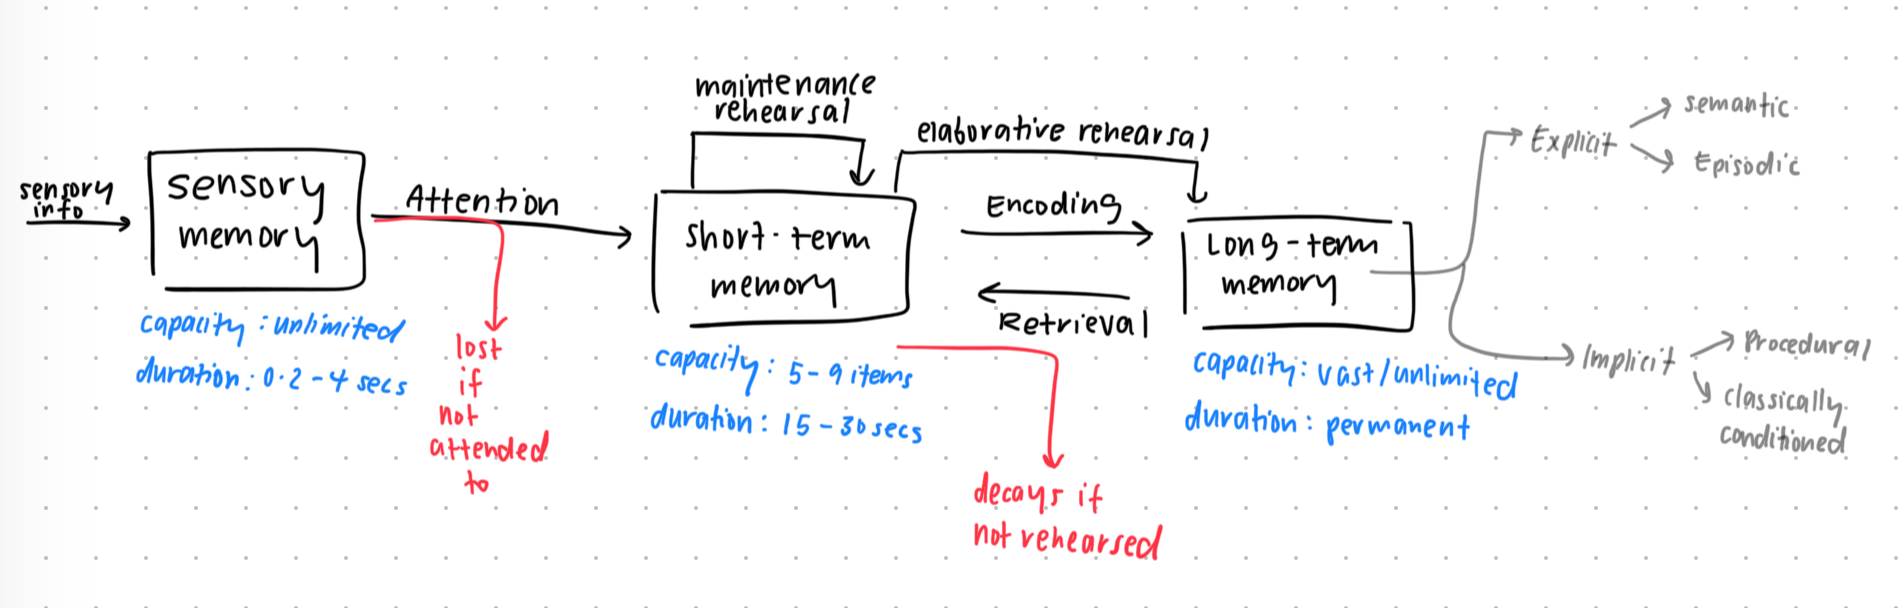 sensory
info
sensory
memory
capacity: unlimited
duration: 0.2-4 secs
Attention
lost
if
not
attended
to
maintenance
rehearsal
short-term
memory
capacity: 5-9 items
duration: 15-30 secs
decays if
not rehearsed
elaborative rehearsal
Encoding
Retrieval
Long-term
memory
capacity: vast/unlimited
duration: permanent
Explicit
semantic
Episodic
Implicit
Procedural
classically
conditioned